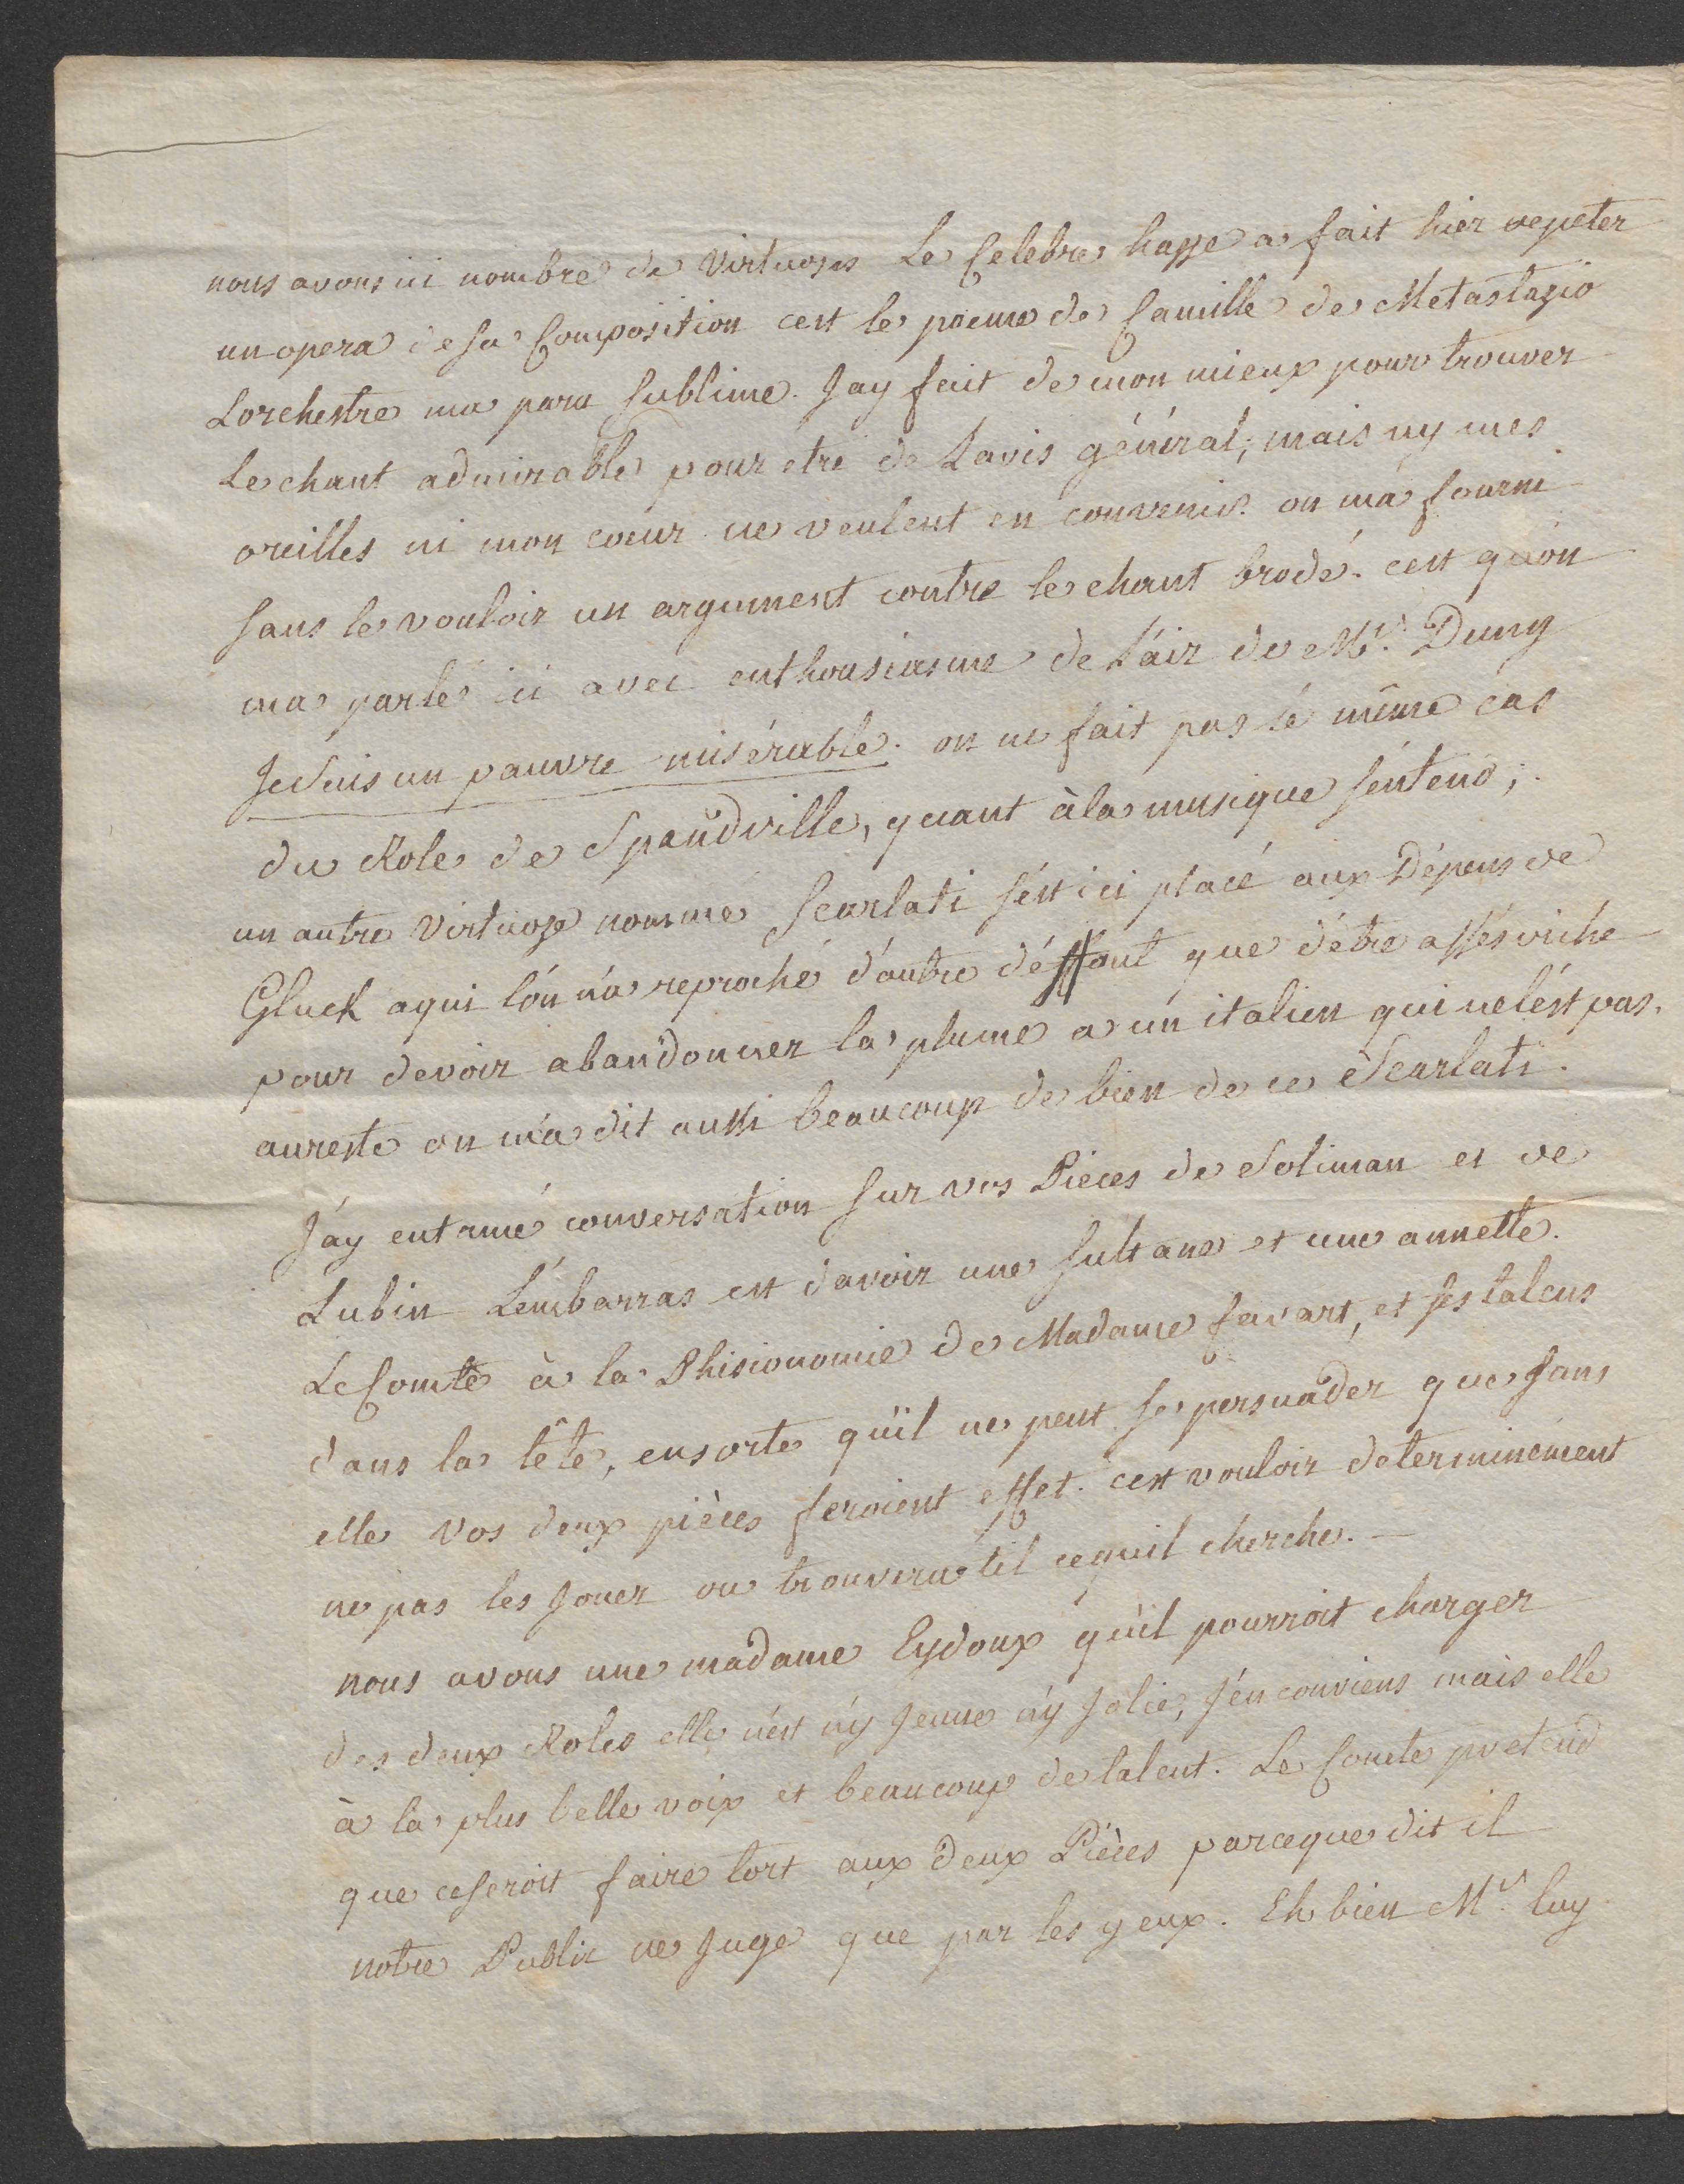 nous avons ici nombre de Virtuoses Le Celebre hasse a fait hier repeter
un opera de sa Composition cest le poeme de Camille de Metastasio
Lorchestre ma paru sublime. Jay fait de mon mieux pour trouver
Le chant admirable pour etre de Lavis général; mais ny mes
oreilles ni mon cœur ne veulent en convenir. on m'a fourni
sans le vouloir un argument contre le chant brodé. cest qu'on
m'a parlé ici avec enthousiasme de L'air de Mr. Duny
Je suis un pauvre misérable. on ne fait pas le même cas
du Role de Spaudville, quant à la musique s'entend;
un autre Virtuose nommé Scarlati s'est ici placé aux Dépens de
Gluck a qui l'on n'a reproché d'autre déffaut que d'être assés riche
pour devoir abandonner la plume a un italien qui ne l'est pas.
au reste on m'a dit aussi beaucoup de bien de ce Scarlati.
J'ay entamé conversation sur vos Pieces de Soliman et de
Lubin L'embarras est d'avoir une sultane et une annette.
Le Comte à la Phisionomie de Madame favart, et ses talens
dans la tête, ensorte qu'il ne peut se persuader que sans
elle vos deux pièces feroient effet. cest vouloir determinément
ne pas les Jouer ou trouvera til ce quil cherche. —
nous avons une madame Eydoux qu'il pourroit charger
des deux Roles elle n'est n'y Jeune n'y Jolie, J'en conviens mais elle
à la plus belle voix et beaucoup de talent. Le Comte pretend
que ce seroit faire tort aux deux Pièces parceque dit il
notre Public ne Juge que par les yeux. Eh bien Mr. luy